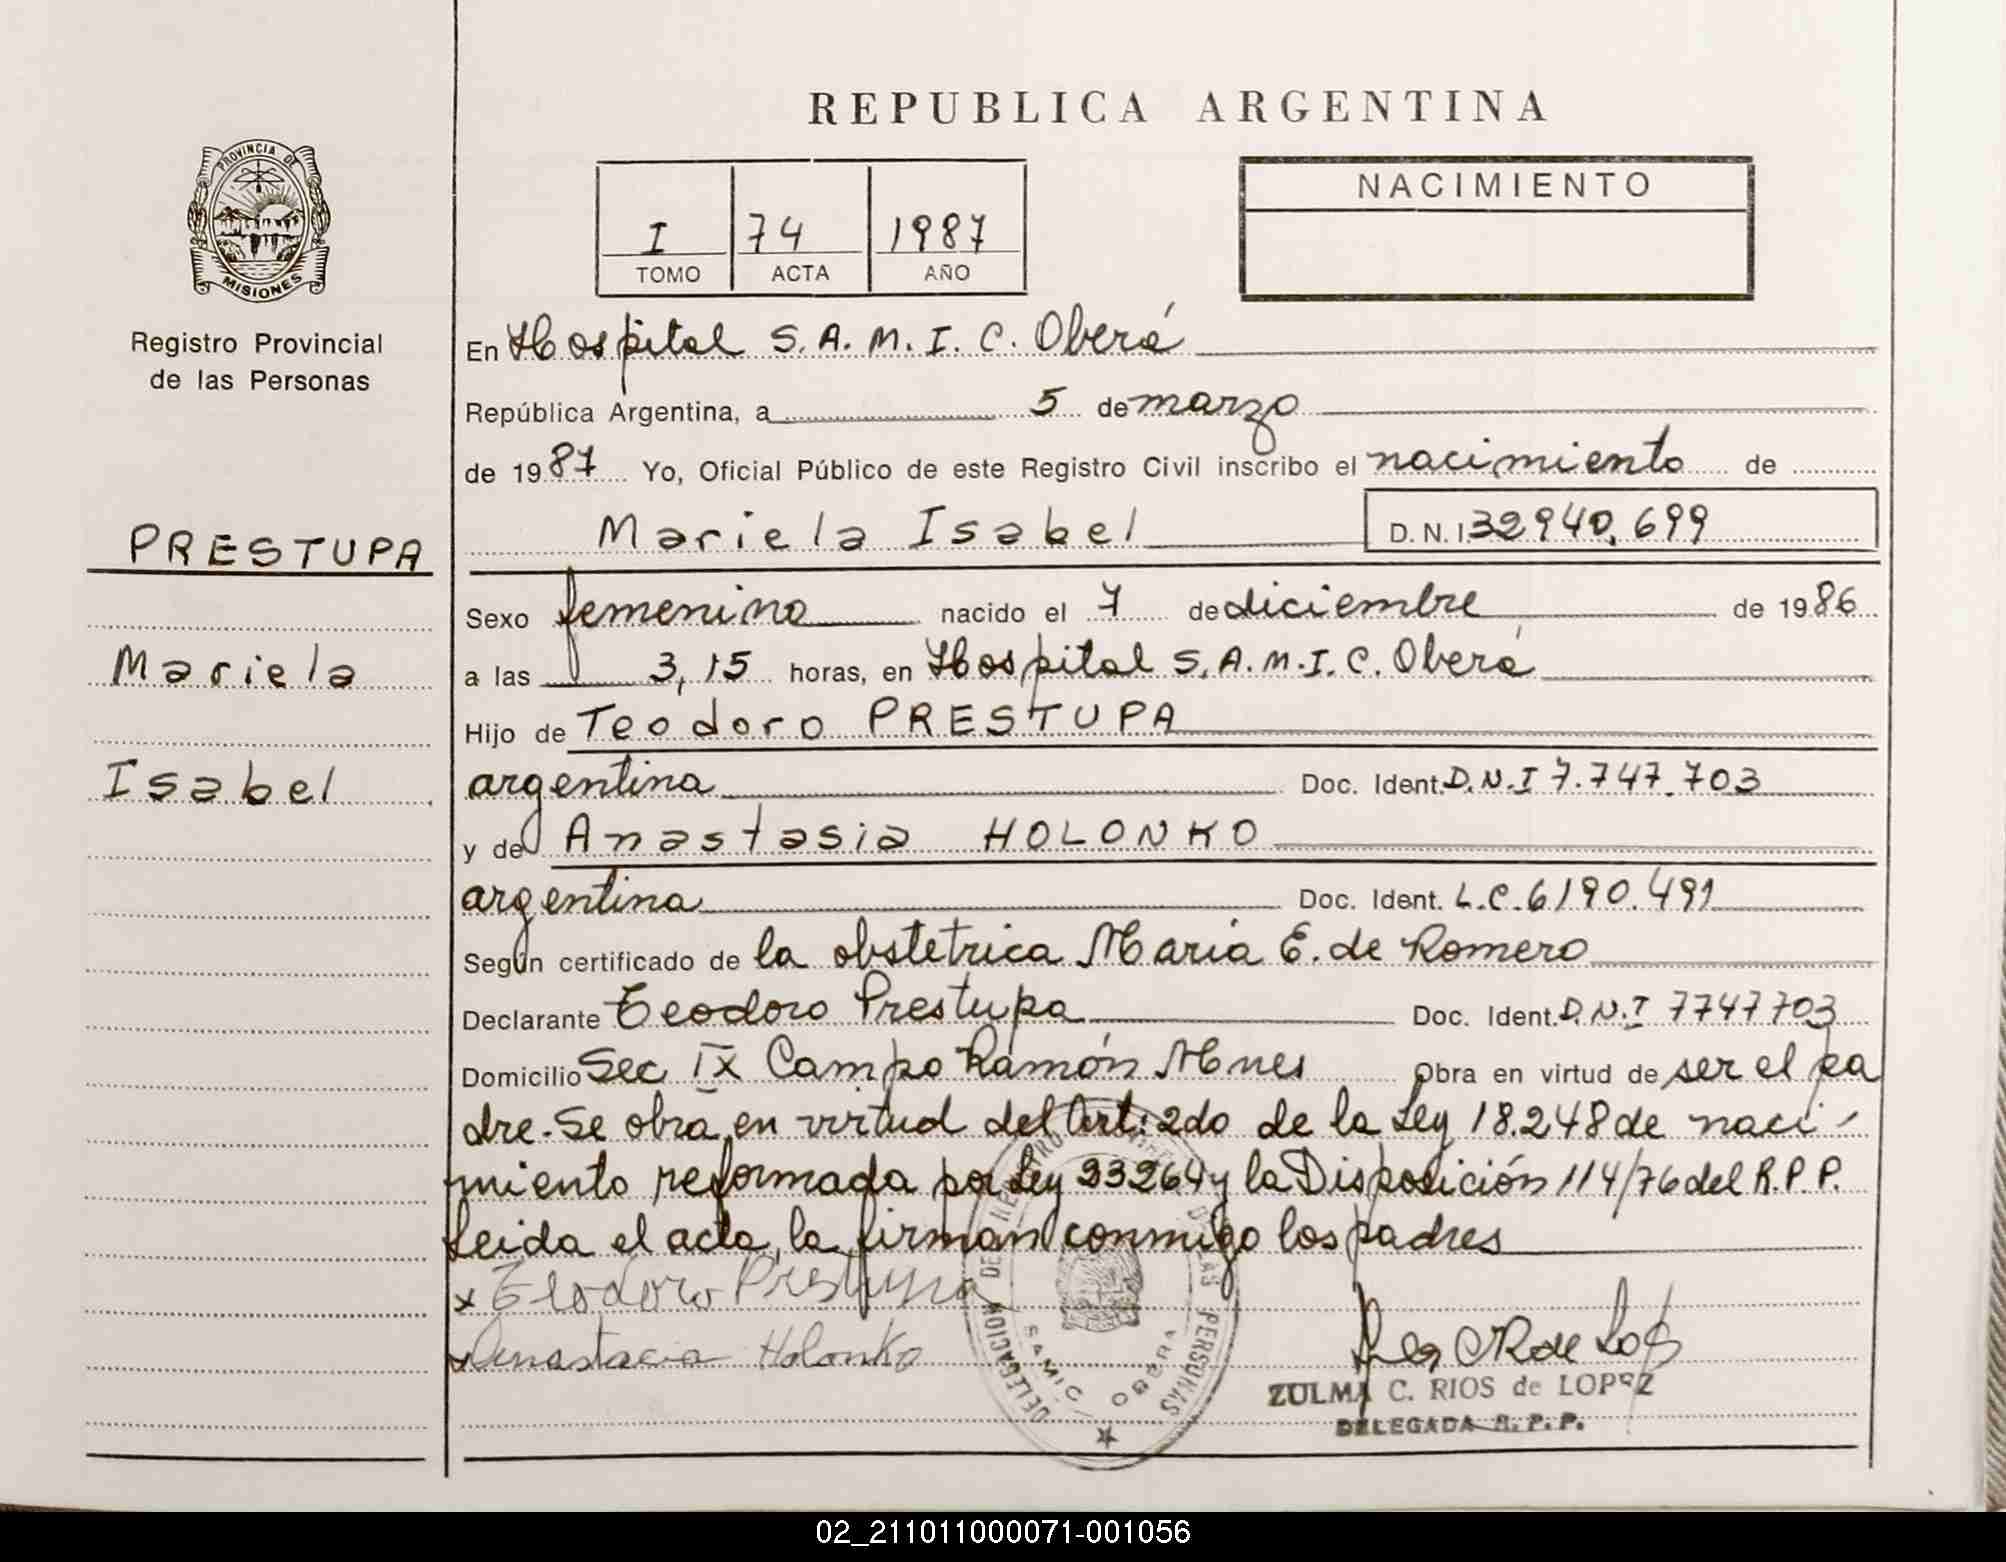 REPUBLICA ARGENTINA
PROVINCIA DE
MISIONES
Registro Provincial
de las Personas
I 74 1987
TOMO ACTA AÑO
NACIMIENTO
PRESTUPA
Mariela
Isabel
En Hospital S.A.M.I.C. Oberá
República Argentina, a 5 de marzo
de 1987 Yo, Oficial Público de este Registro Civil inscribo el nacimiento de
Mariela Isabel D.N.I 32940.699
Sexo femenino nacido el 7 de diciembre de 1986
a las 3,15 horas, en Hospital S.A.M.I.C. Oberá
Hijo de Teodoro PRESTUPA
argentina Doc. Ident. D.N.I 7.747.703
y de Anastasia HOLONKO
argentina Doc. Ident. L.C.6190.491
Según certificado de la obstetrica Maria E. de Romero
Declarante Teodoro Prestupa Doc. Ident. D.N.I 7747703
Domicilio Sec IX Campo Ramón Mnes Obra en virtud de ser el pa
dre. Se obra en virtud del Art: 2do de la Ley 18.248 de naci-
miento reformada por Ley 23264 y la Disposición 114/76 del R.P.P.
Leida el acta, la firman conmigo los padres
x Teodoro Prestupa
x Anastacia Holonko
DELEGACION DE REGISTRO DE LAS PERSONAS
SAMIC OBERA
ZULMA C. RIOS de LOPEZ
DELEGADA R.P.P.
02_211011000071-001056